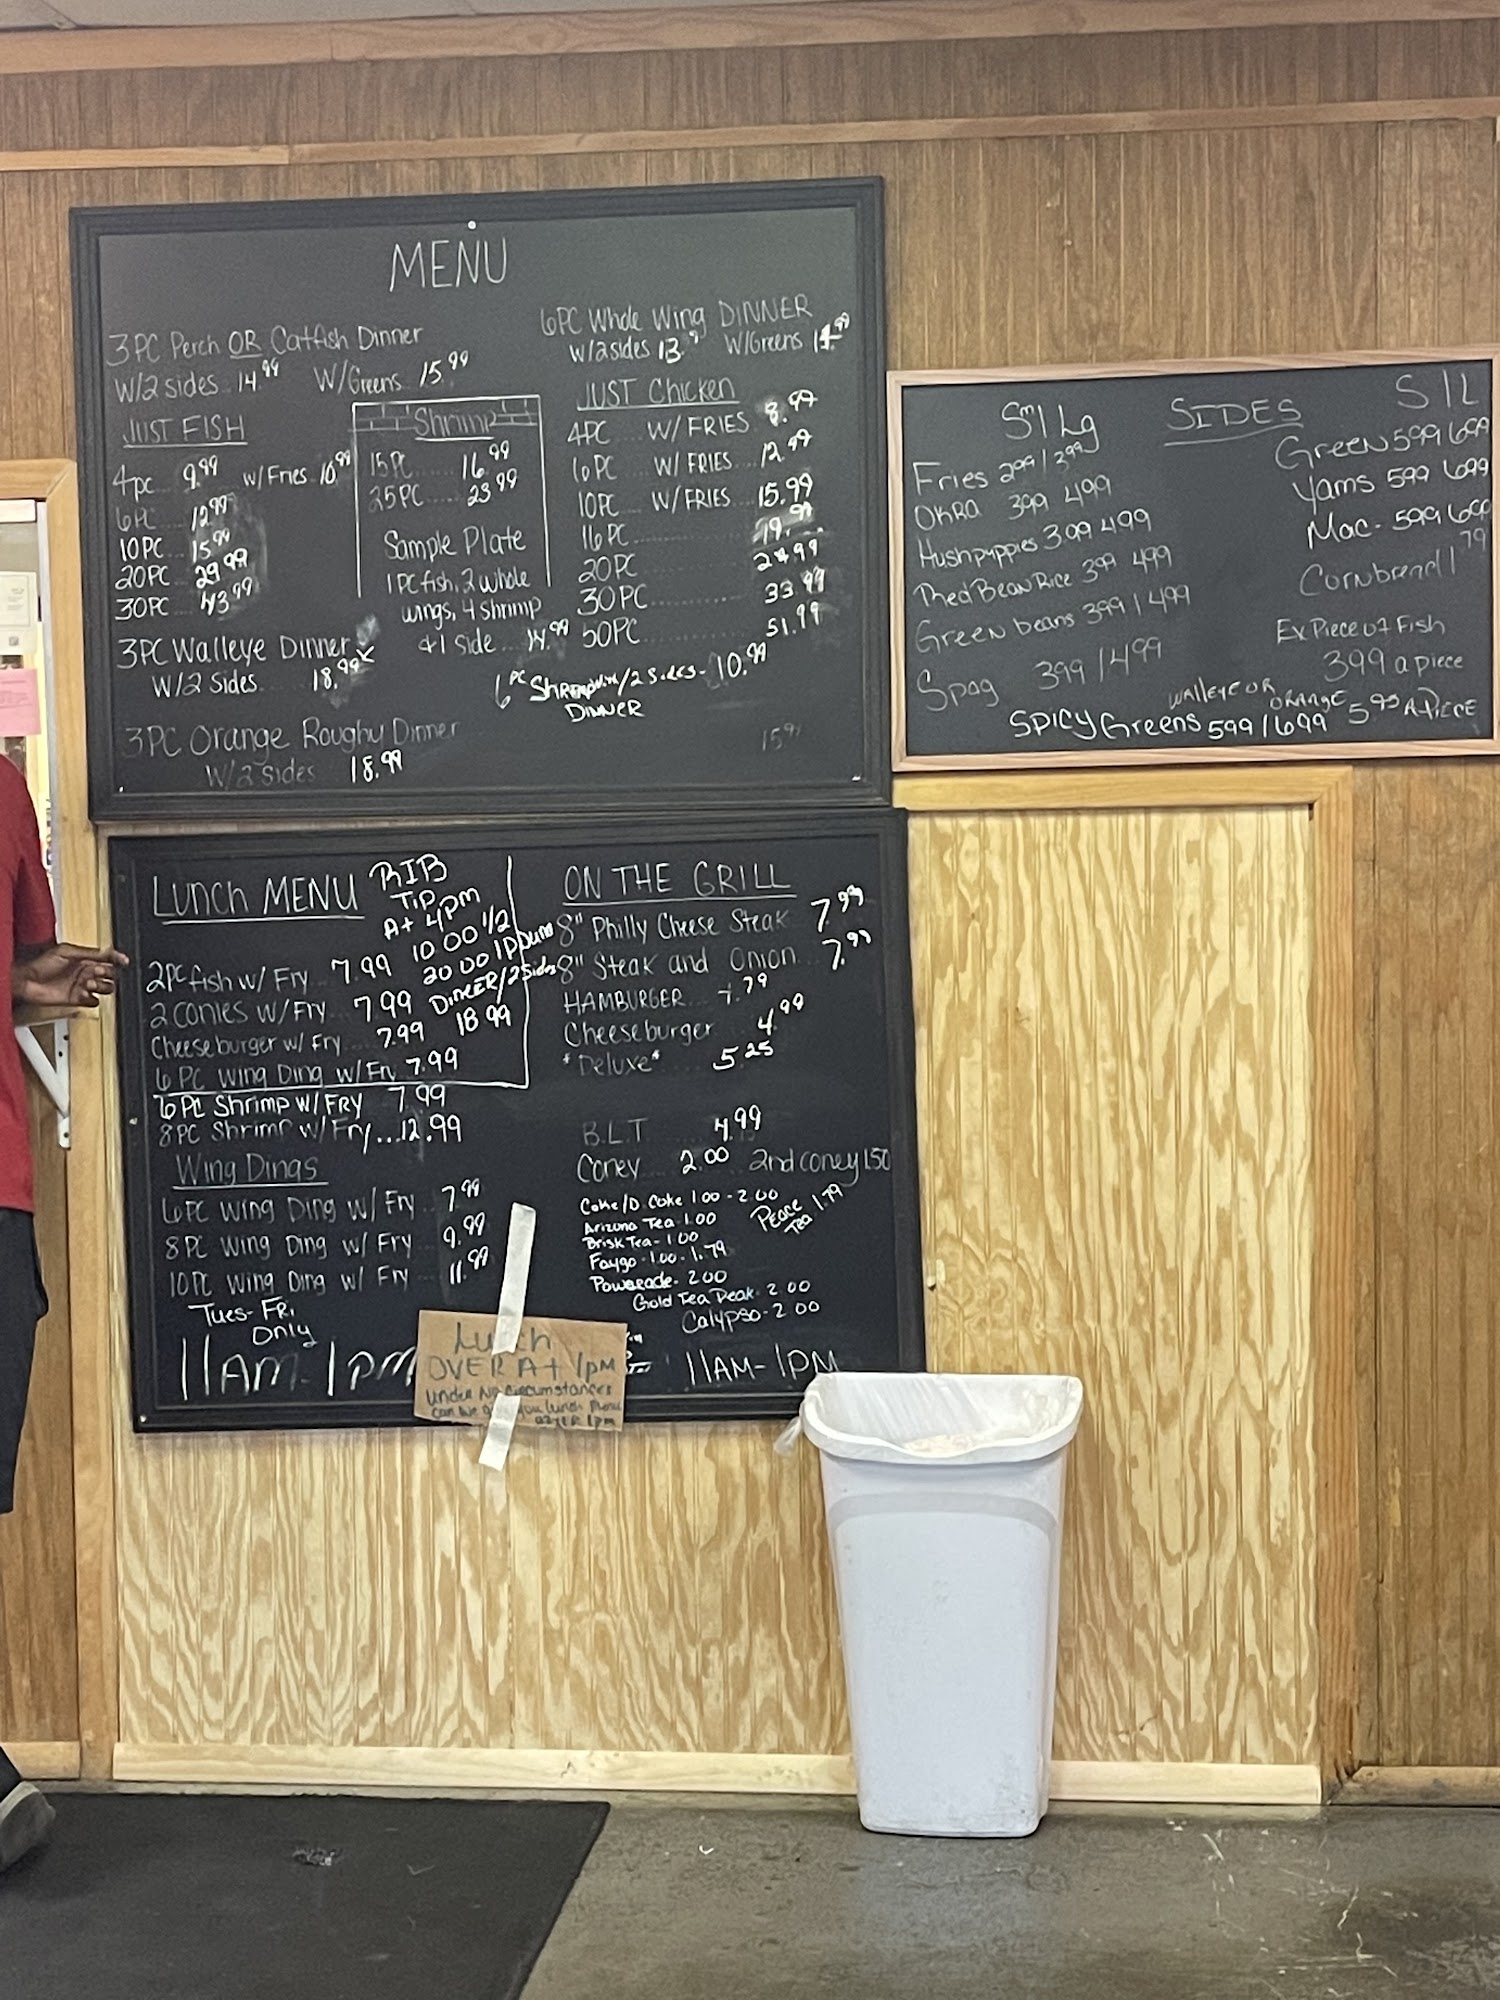 MENU
3PC Perch OR Catfish Dinner
W/2 sides 14.99 W/Greens 15.99
JUST FISH
4pc 9.99 w/Fries 10.99
6PC 12.99
10PC 15.99
20PC 29.99
30PC 43.99
3PC Walleye Dinner
W/2 Sides 18.99
3PC Orange Roughy Dinner
W/2 Sides 18.99
Shrimp
15PC 16.99
25PC 23.99
Sample Plate
1PC fish, 2 whole
wings, 4 shrimp
&1 side... 14.99
6PC Shrimp w/2 Sides - 10.99
DINNER
6PC Whole Wing DINNER
W/2sides 13. W/Greens 14.99
JUST Chicken
4PC W/ FRIES 8.99
6PC W/ FRIES 12.99
10PC W/FRIES 15.99
16PC 19.99
20PC
30PC 33.99
50PC 51.99
15
Sm/Lg SIDES S/L
Fries 299/399
OKRA 399 499
Hushpuppies 399 499
Red Bean Rice 399 499
Green beans 399/499
Spag 399/499
Green 599 699
Yams 599 699
Mac - 599
Cornbread 1.79
Ex Piece of Fish
399 a piece
SPICY Greens 599/699
WALLEYE OR
ORANGE 5.99 A PIECE
Lunch MENU
RIB
TIP
At 4pm
10 00 1/2
20 00 1 Pound
DINNER/2 Sides
18 99
2PC fish w/ Fry 7.99
2 Conies w/Fry 7.99
Cheeseburger w/ Fry 7.99
6 PC Wing Ding w/Fry 7.99
6PC Shrimp w/FRY 7.99
8PC Shrimp w/Fry...12.99
Wing Dings
6PC Wing Ding w/ Fry 7.99
8PC Wing Ding w/ Fry 9.99
10PC Wing Ding w/ Fry 11.99
Tues-Fri
Only
11AM-1PM
ON THE GRILL
8" Philly Cheese Steak 7.99
8" Steak and Onion 7.99
HAMBURGER .79
Cheeseburger 4.99
*Deluxe* 5.25
B.L.T 4.99
Coney 2.00 2nd coney 1.50
Coke/D. Coke 1.00 - 2.00
Arizona Tea - 1.00
Peace
Tea 1.79
Brisk Tea - 1.00
Faygo - 1.00 - 1.79
Powerade - 2.00
Gold Tea Peak - 2.00
Calypso - 2.00
11AM-1PM
Lunch
OVER At 1pm
Under No Circumstances
can we give you lunch Menu
after 1pm